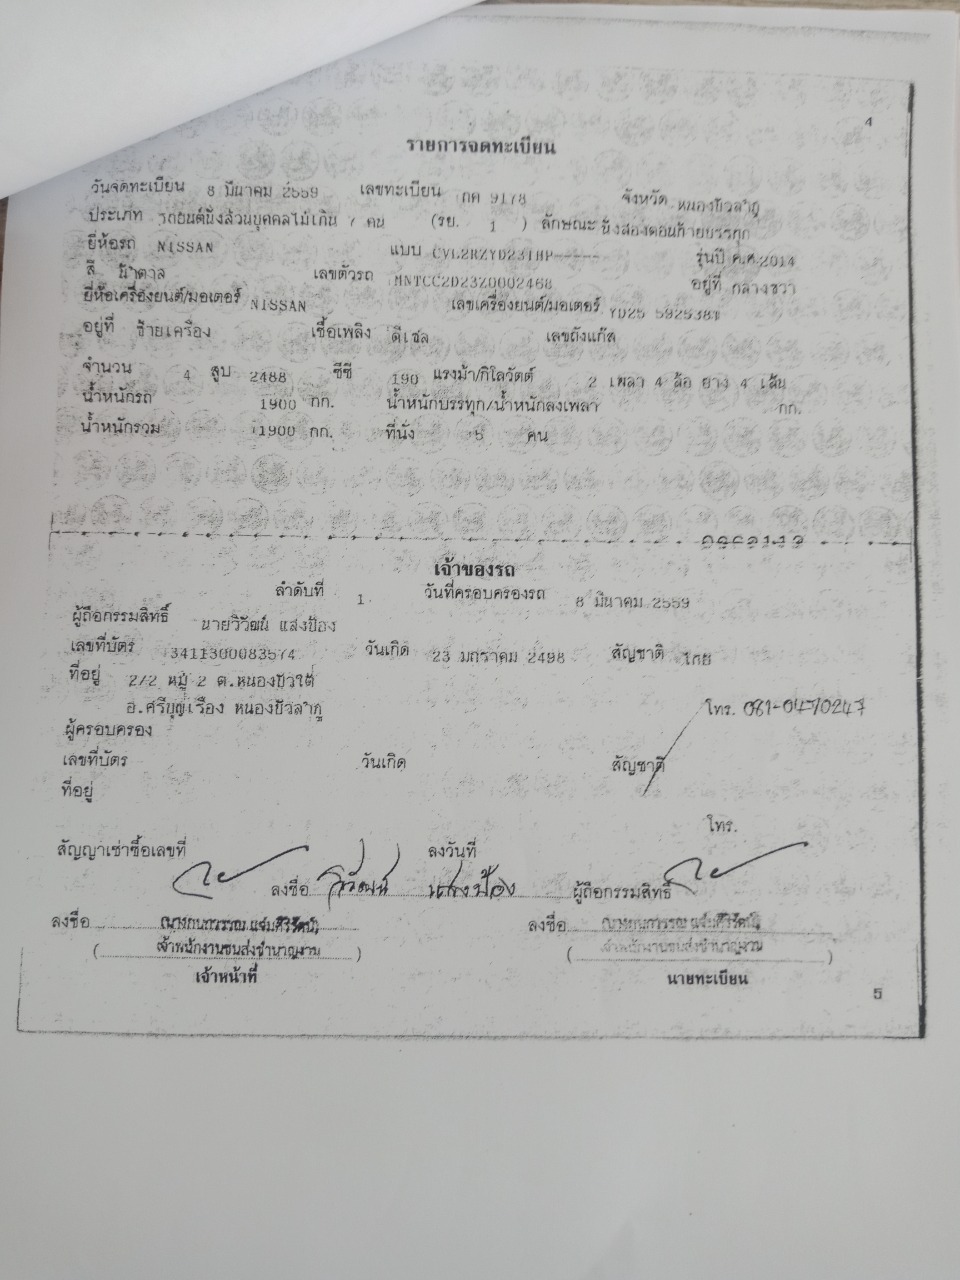 4
รายการจดทะเบียน
วันจดทะเบียน 8 มีนาคม 2559 เลขทะเบียน กด 9178 จังหวัด หนองบัวลำภู
ประเภท รถยนต์นั่งส่วนบุคคลไม่เกิน 7 คน (รย. 1 ) ลักษณะ นั่งสองตอนท้ายบรรทุก
ยี่ห้อรถ NISSAN แบบ รุ่นปี ค.ศ. 2014
สี น้ำตาล เลขตัวรถ MNTCC2D23Z0002468 อยู่ที่ กลางขวา
ยี่ห้อเครื่องยนต์/มอเตอร์ NISSAN เลขเครื่องยนต์/มอเตอร์ YD25
อยู่ที่ ซ้ายเครื่อง เชื้อเพลิง ดีเซล เลขถังแก๊ส
จำนวน 4 สูบ 2488 ซีซี 190 แรงม้า/กิโลวัตต์ 2 เพลา 4 ล้อ ยาง 4 เส้น
น้ำหนักรถ 1900 กก. น้ำหนักบรรทุก/น้ำหนักลงเพลา กก.
น้ำหนักรวม 1900 กก. ที่นั่ง 5 คน
เจ้าของรถ
ลำดับที่ 1 วันที่ครอบครองรถ 8 มีนาคม 2559
ผู้ถือกรรมสิทธิ์ นายวิวัฒน์ แสงป้อง
เลขที่บัตร 3411300083574 วันเกิด 23 มกราคม 2498 สัญชาติ ไทย
ที่อยู่ 2/2 หมู่ 2 ต.หนองบัวใต้
อ.ศรีบุญเรือง หนองบัวลำภู โทร. 081-0470247
ผู้ครอบครอง
เลขที่บัตร วันเกิด สัญชาติ
ที่อยู่
โทร.
สัญญาเช่าซื้อเลขที่ ลงวันที่
ลงชื่อ วิวัฒน์ แสงป้อง ผู้ถือกรรมสิทธิ์
ลงชื่อ ลงชื่อ
( เจ้าพนักงานขนส่งชำนาญงาน ) ( เจ้าพนักงานขนส่งชำนาญงาน )
เจ้าหน้าที่ นายทะเบียน
5